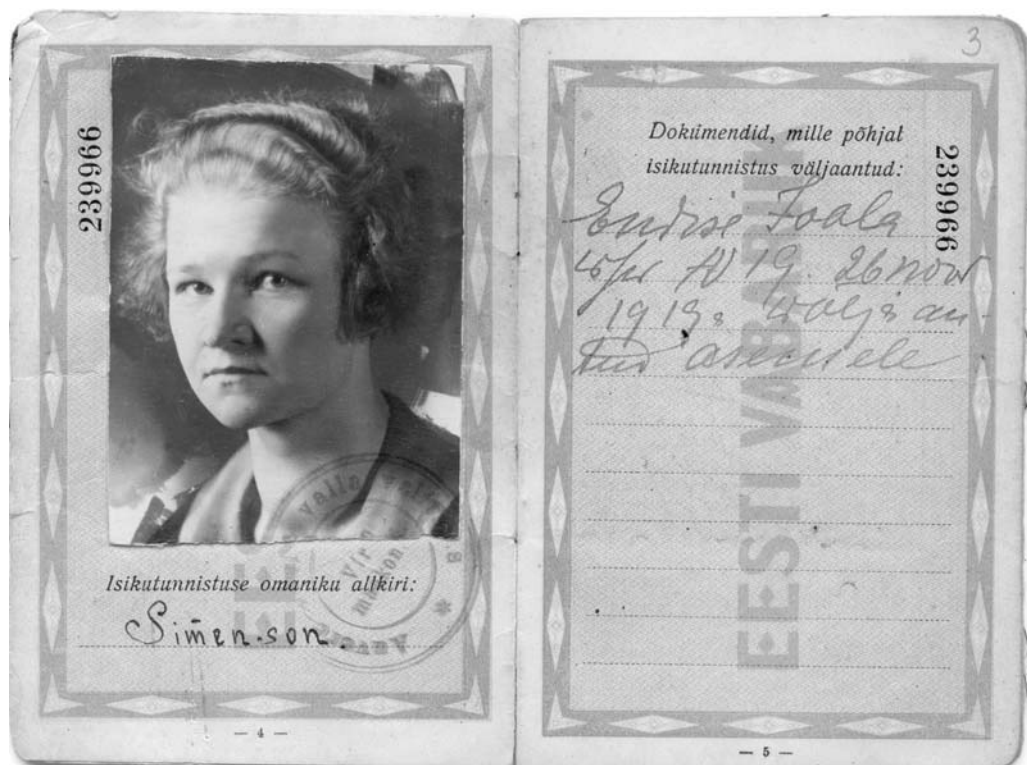 239966
Isikutunnistuse omaniku allkiri:
Simenson.
— 4 —
3
Dokumendid, mille põhjal
isikutunnistus väljaantud:
239966
Endise Joala
19. 26 now
1919a wälja an-
tud asemele
EESTI VABARIIK
— 5 —